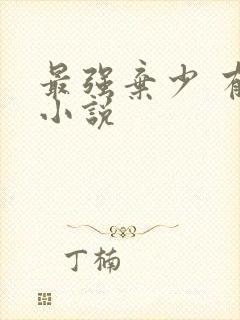 最强弃少
小说
丁楠